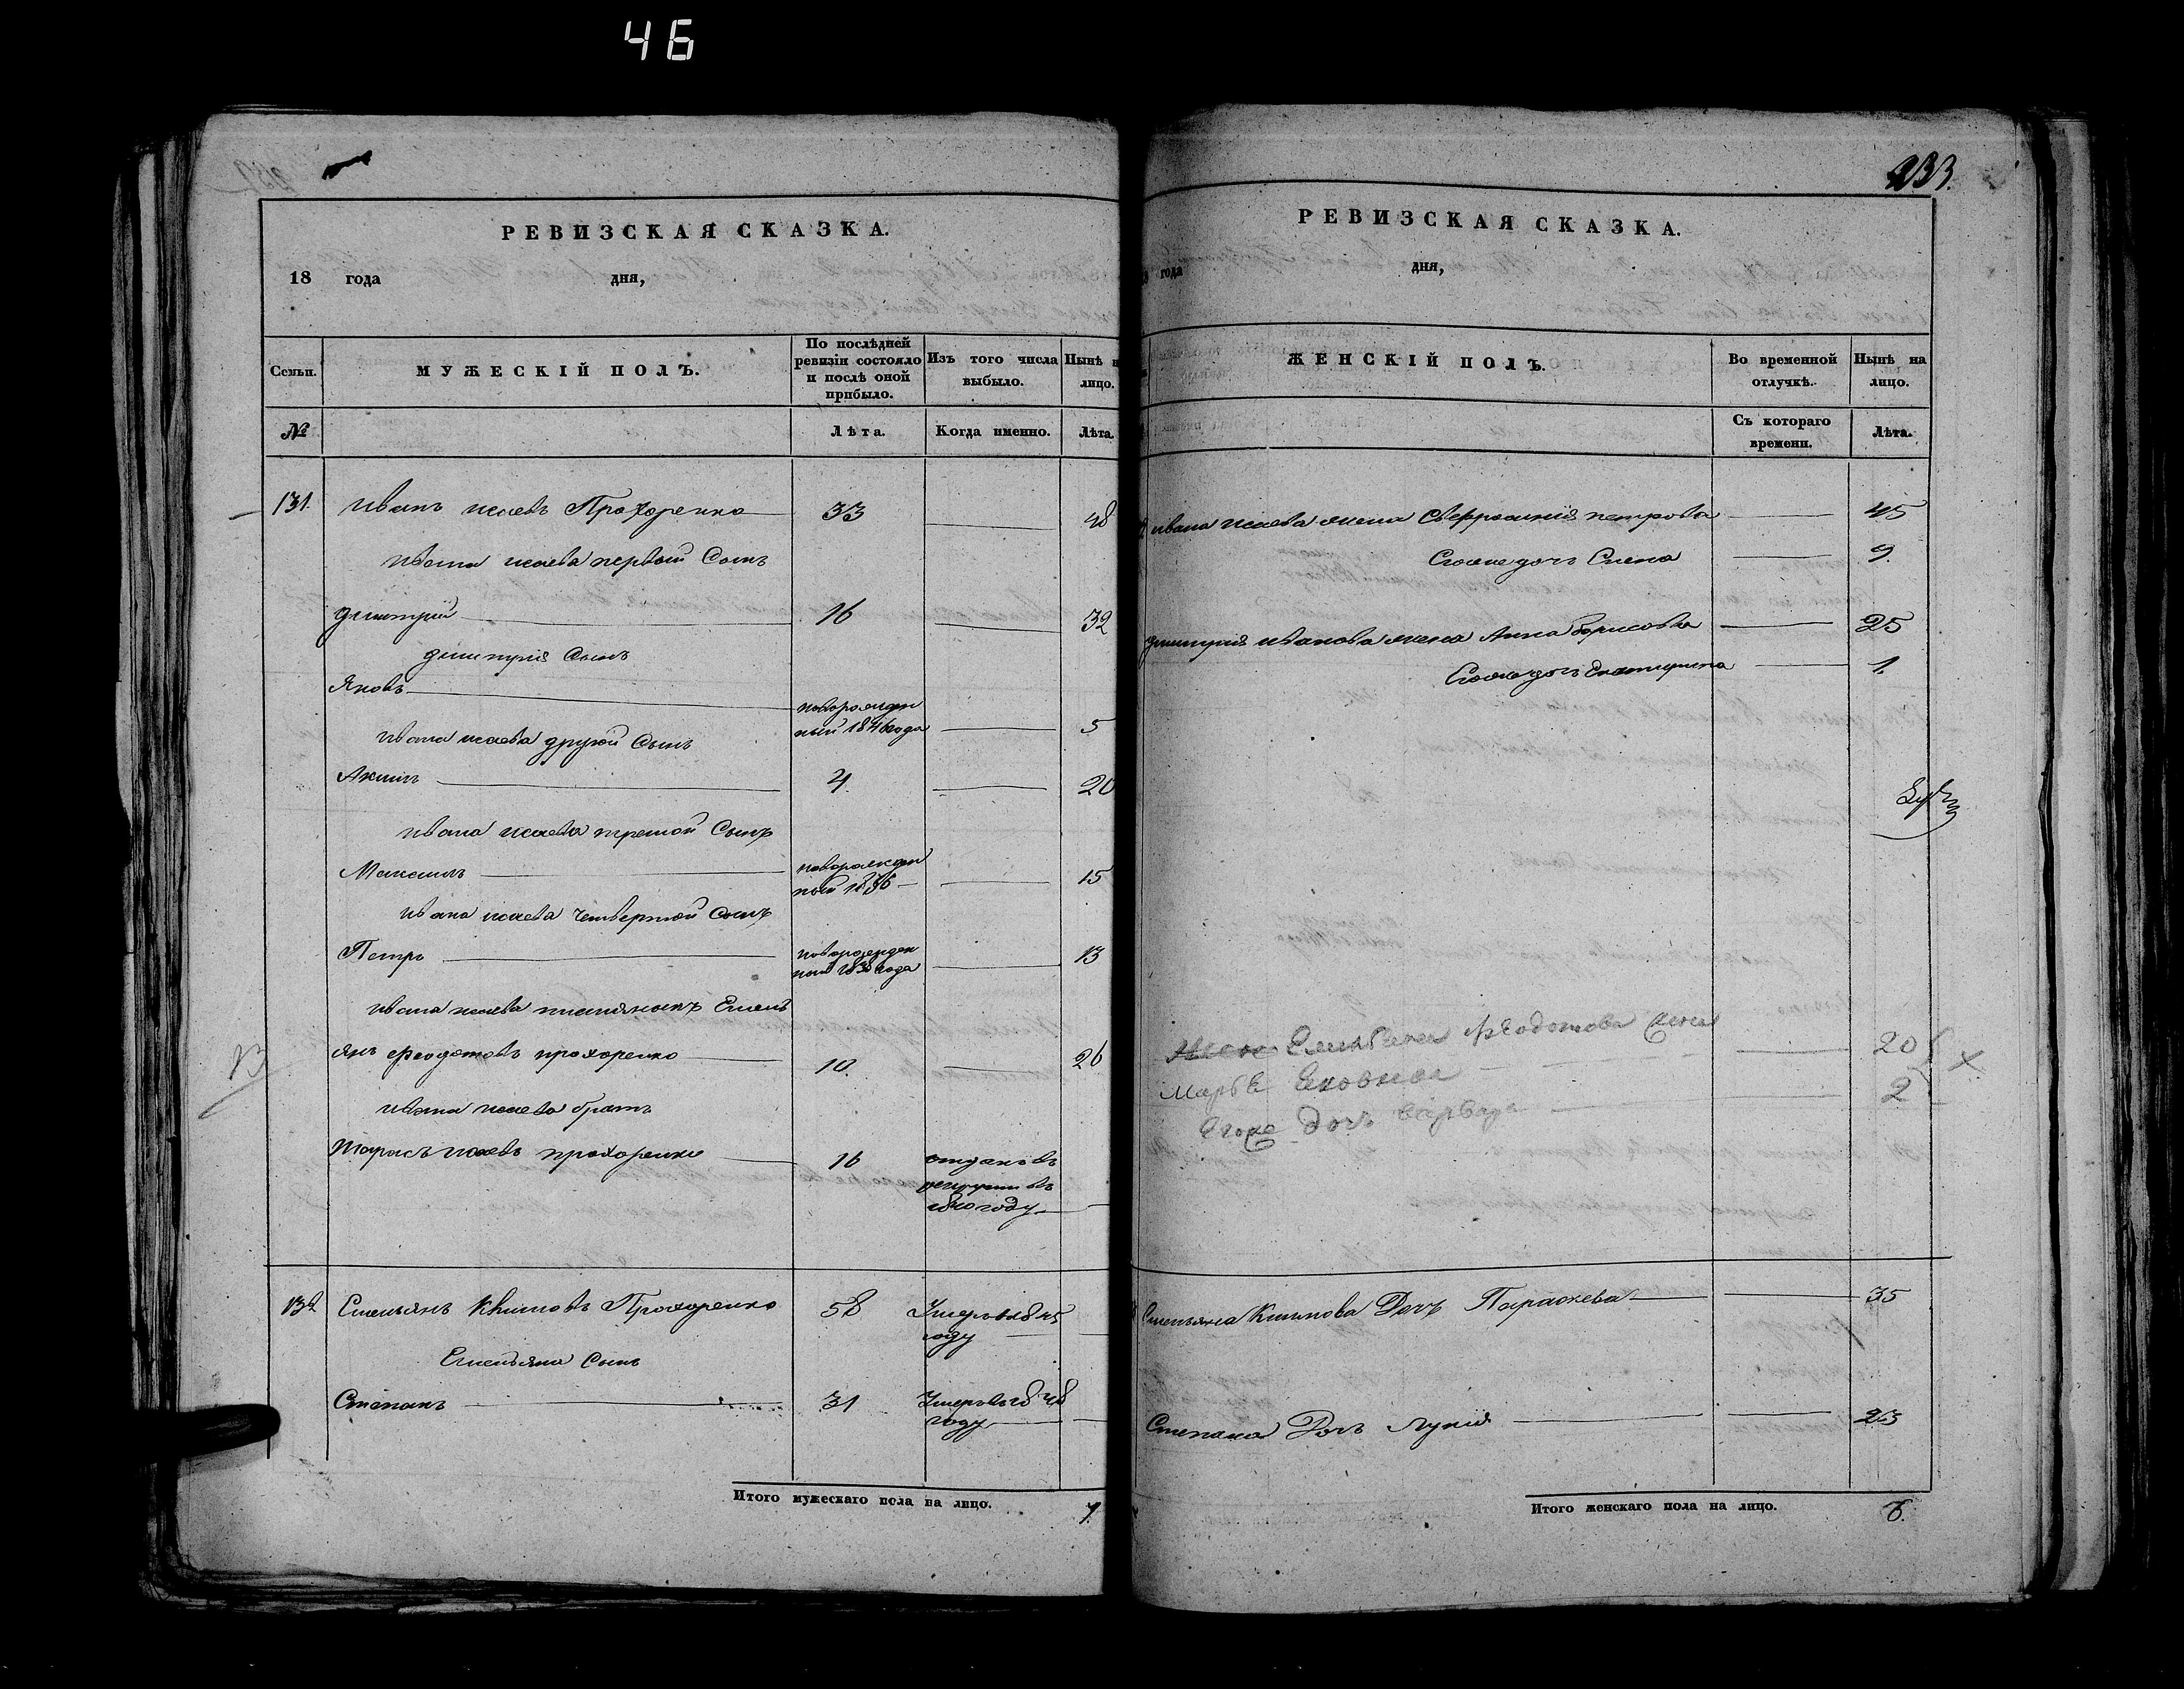 46
РЕВИЗСКАЯ СКАЗКА.
18 года дня,
Семьи.
МУЖЕСКІЙ ПОЛЪ.
По послѣдней ревизіи состояло и послѣ оной прибыло.
Изъ того числа выбыло.
Нынѣ н лицо.
№
Лѣта.
Когда именно.
Лѣта.
131. иванъ исаевъ Прохоренко 33 48
ивана исаева первой Сынъ
димитрій 16 32
димитрія Сынъ
Яковъ новорожден ный 1846 года 5
ивана исаева другой Сынъ
Акимъ 4. 20
ивана исаева третой Сынъ
Максимъ новорожден ной 1836 15
ивана исаева четвертой Сынъ
Петръ новорожден ной 1838 года 13
ивана исаева
феодотовъ прохоренко 10. 26
ивана исаева братъ
Тарасъ исаевъ прохоренко 16 отданъ въ рекруты въ 1840 году
132 Емельянъ Климовъ Прохоренко 58 Умеръ в 1845 году
Емельяна Сынъ
Степанъ 31 Умеръ в 1848 году
Итого мужескаго пола на лицо. 7.
233.
РЕВИЗСКАЯ СКАЗКА.
года дня,
ЖЕНСКІЙ ПОЛЪ.
Во временной отлучкѣ.
Нынѣ на лицо.
Съ котораго времени.
Лѣта.
ивана исаева жена петрова 45
Егоже дочь Елена 9.
димитрія иванова жена Анна борисова 25
Егоже дочь Екатерина 1.
феодотова жена 20
Марья
Егоже дочь варвара 2
Емельяна Климова Дочь Параскева 35
Степана Дочь Лукія 23
Итого женскаго пола на лицо. 6.